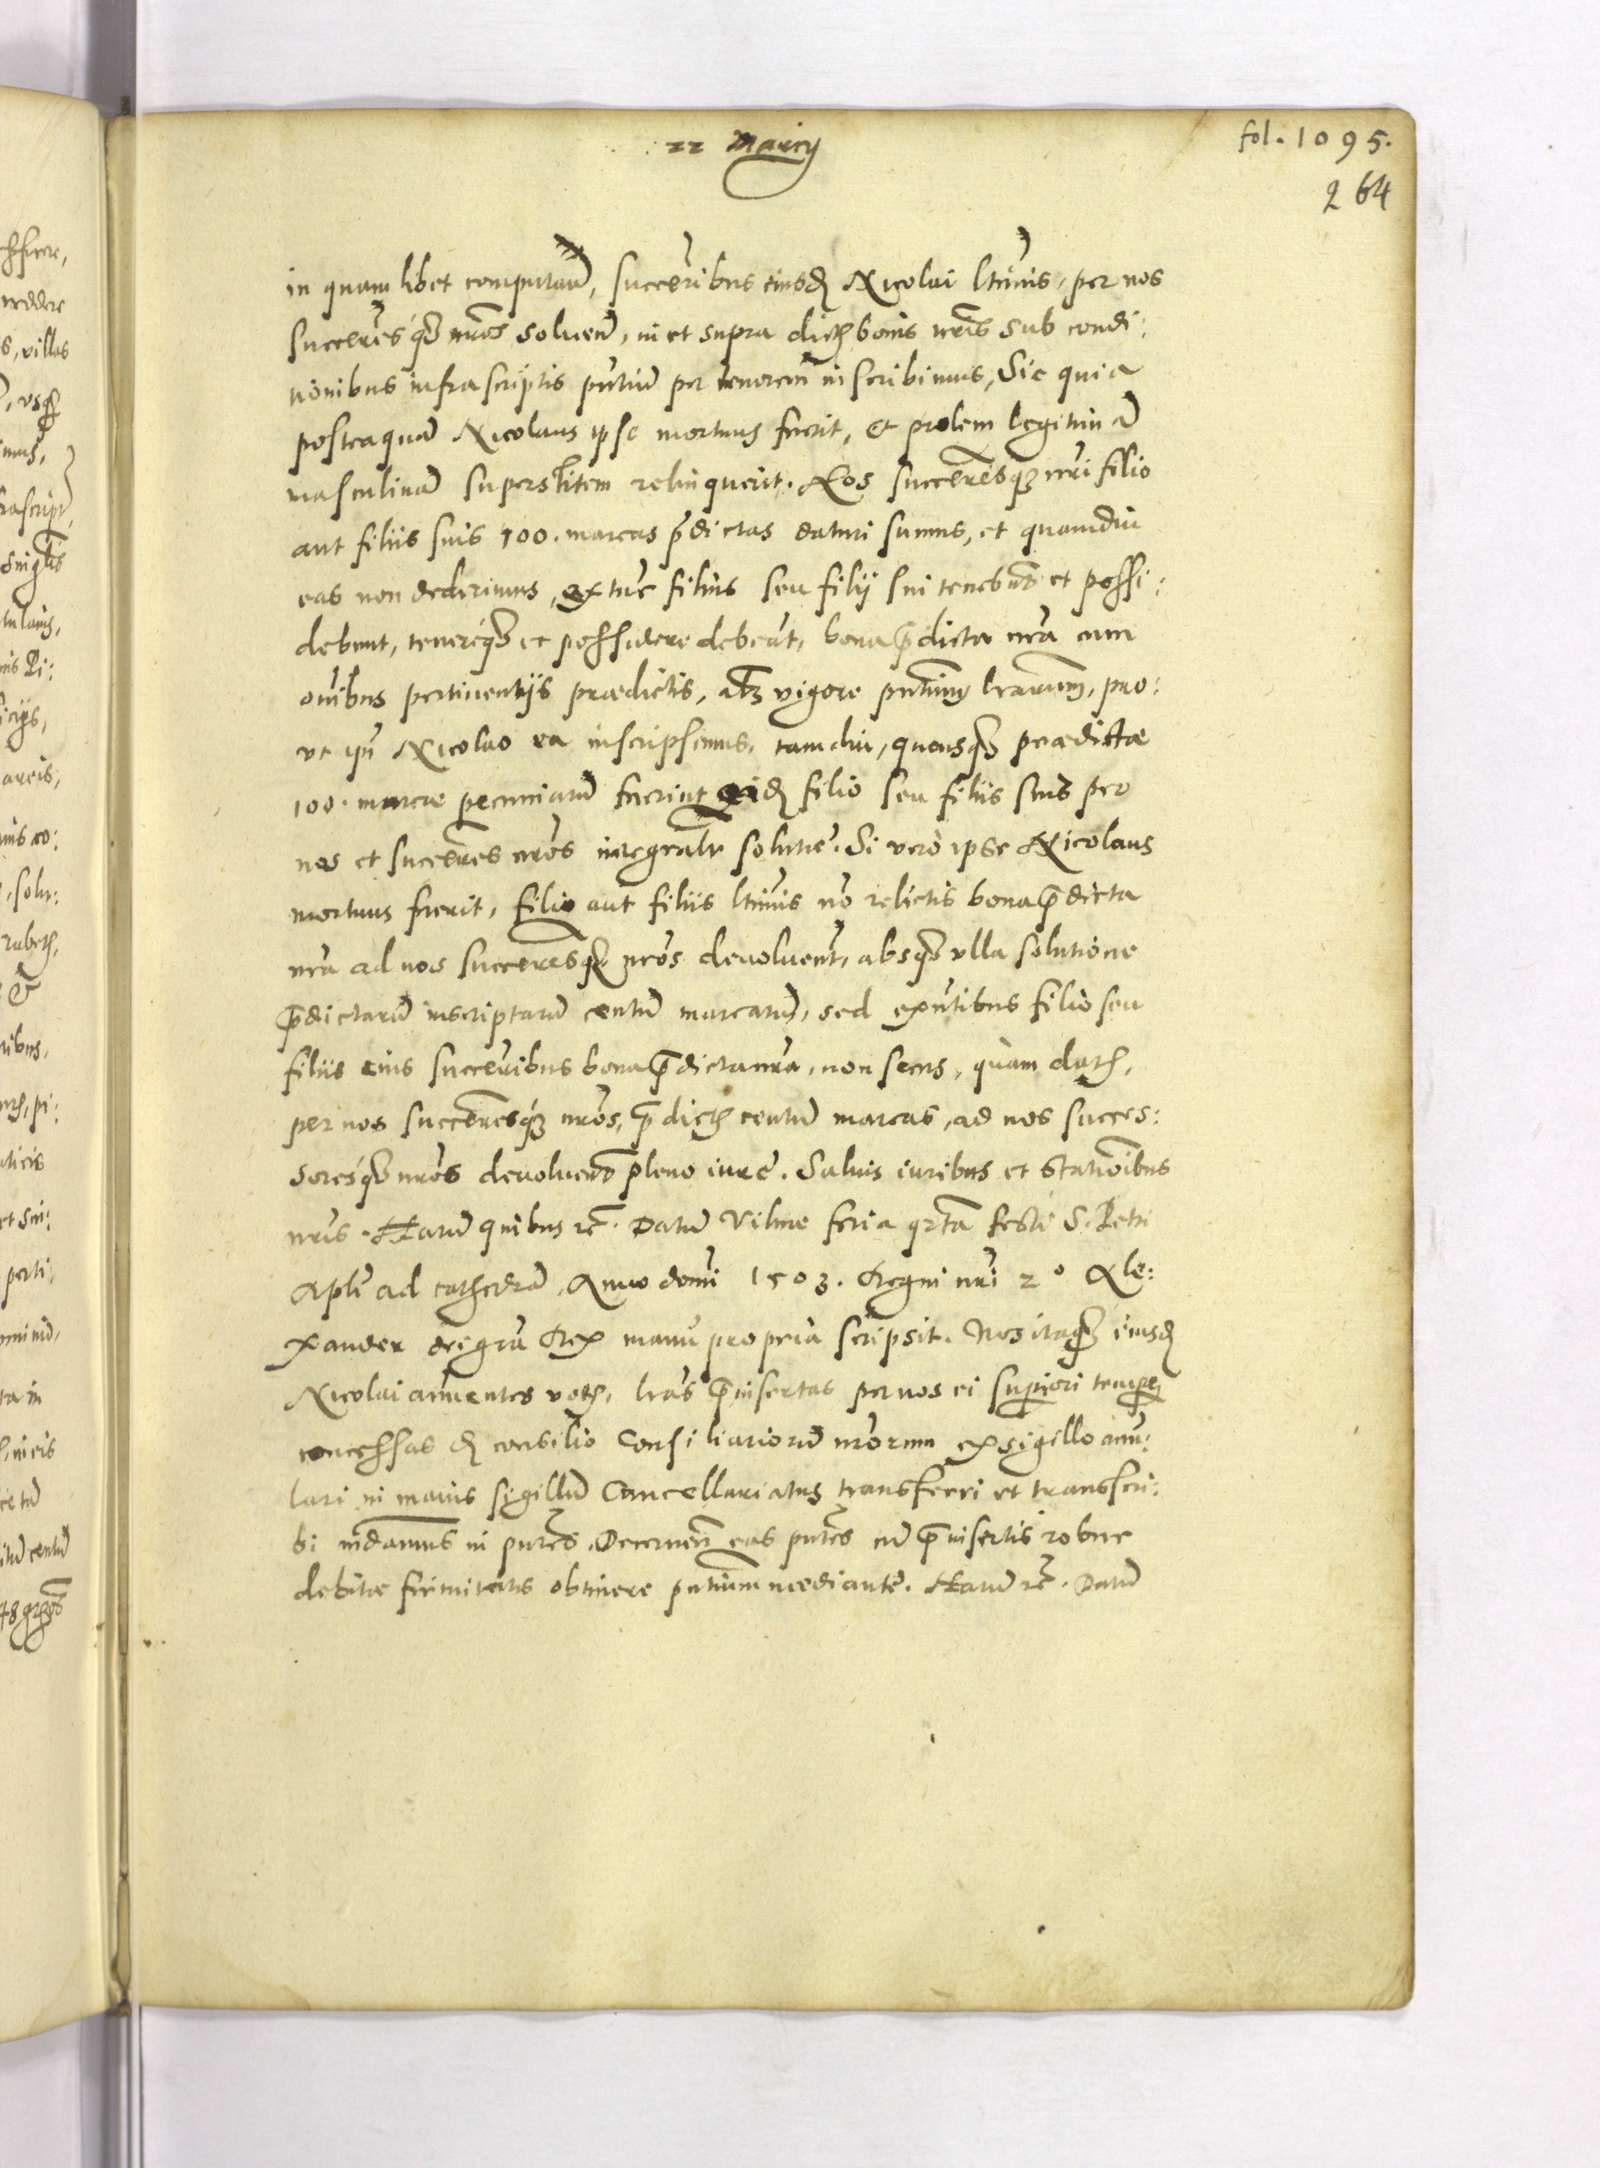 22 Marcij
fol. 1095.
264
in quamlibet computan̄, succer̄ibus eiusd Nicolai ltīmis, per nos
succer̄esq nr̄os soluen̄, in et supra dict bonis nr̄is sub condi:
tionibus infrascriptis pn̄tiū per tenorem inscribimus, Sic quia
posteaquā Nicolaus ipse mortuus fuerit, et prolem legitimā
masculinā superstitem relinquerit. Nos succer̄esq nr̄i filio
aut filiis suis 100. marcas p̄dictas daturi sumus, et quamdiu
eas non dederimus, extūc filius seu filij sui tenebūt et possi:
debunt, tenereq et possidere debeāt, bona p̄dicta nr̄a cum
om̄ibus pertinentijs praedictis, vigore pn̄tium lr̄arum, pro:
ut ip̄i Nicolao ea inscripsimus, tamdiu, quousq praedictae
100. marcae pecuniarū fuerint eid filio seu filiis suis per
nos et succer̄es nr̄os integral̄r solutae. Si vero ipse Nicolaus
mortuus fuerit, filio aut filiis ltīmis nō relictis bona p̄dicta
nr̄a ad nos succer̄esq nr̄os deuoluent, absq ulla solutione
p̄dictarū inscriptarū centū marcarū, sed exn̄tibus filio seu
filiis eius succer̄ibus bona p̄dicta nr̄a, non secus, quàm dat,
per nos succer̄esq nr̄os, p̄dict centū marcas, ad nos succes:
soresq nr̄os deuoluent pleno iure. Saluis iuribus et stationibus
nr̄is. Harū quibus rē. Datū Vilnae feria qrta festi S. Petri
Apl̄i ad cathedrā, Anno domi 1503. Regni nr̄i 2º Ale:
xander dei gr̄a Rex manu propria scripsit. Nos itaq eiusd
Nicolai annuentes vot, lr̄as p̄insertas per nos ei superiori tempore
concessas d consilio Consiliariorū nr̄orum ex sigillo annu:
lari in maius sigillum Cancellariatus transferri et transscri:
bi mandamus in pn̄tes. Decernen̄ eas pn̄tes cū p̄insertis robur
debitae firmitatis obtinere pn̄tium mediante. Harū rē. Datū